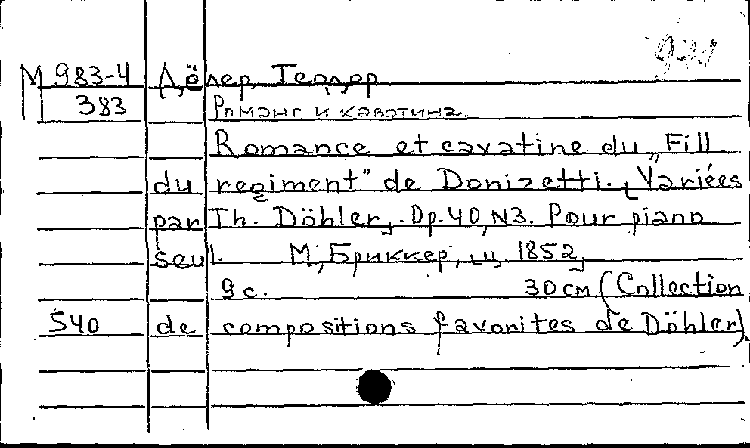 М 983-4 Дёлер, Теодор
383 Романс и каватина
Romance et cavatine du „Fill
du regiment" de Donizetti. Variées
par Th. Döhler. Op. 40, N3. Pour piano
seul. М, Бриккер, ц 1852,
9 с. 30 см (Collection
540 de compositions favorites de Döhler).